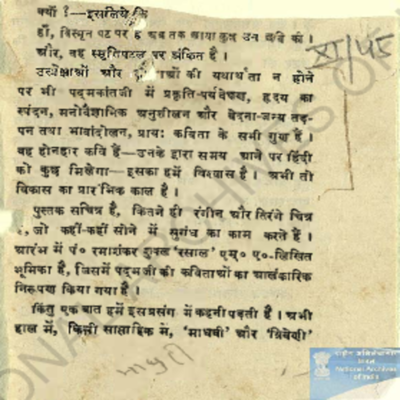 क्यों ?—इसलिये कि
हाँ, विस्मृन पट पर है अब तक छाया कुछ उन छवि की।
और, वह स्मृतिपटल पर अंकित है।
उत्प्रेक्षाओं और की यथार्थता न होने
पर भी पद्मकांतजी में प्रकृति-पर्यवेक्षण, हृदय का
स्पंदन, मनोवैज्ञानिक अनुशीलन और वेदना-जन्य तड़-
पन तथा भावांदोलन, प्रायः कविता के सभी गुण हैं।
वह होनहार कवि हैं—उनके द्वारा समय आने पर हिंदी
को कुछ मिलेगा—इसका हमें विश्वास है। अभी तो
विकास का प्रारंभिक काल है।
पुस्तक सचित्र है, कितने ही रंगीन और तिरंगे चित्र
हैं, जो कहीं-कहीं सोने में सुगंध का काम करते हैं।
आरंभ में पं० रमाशंकर शुक्ल 'रसाल' एम्० ए०-लिखित
भूमिका है, जिसमें पद्मजी की कविताओं का आलंकारिक
निरूपण किया गया है।
किंतु एक बात हमें इस प्रसंग में कहनी पड़ती है। अभी
हाल में, किसी साप्ताहिक में, 'माधवी' और 'त्रिवेणी'
XI/45
राष्ट्रीय अभिलेखागार
National Archives
of India